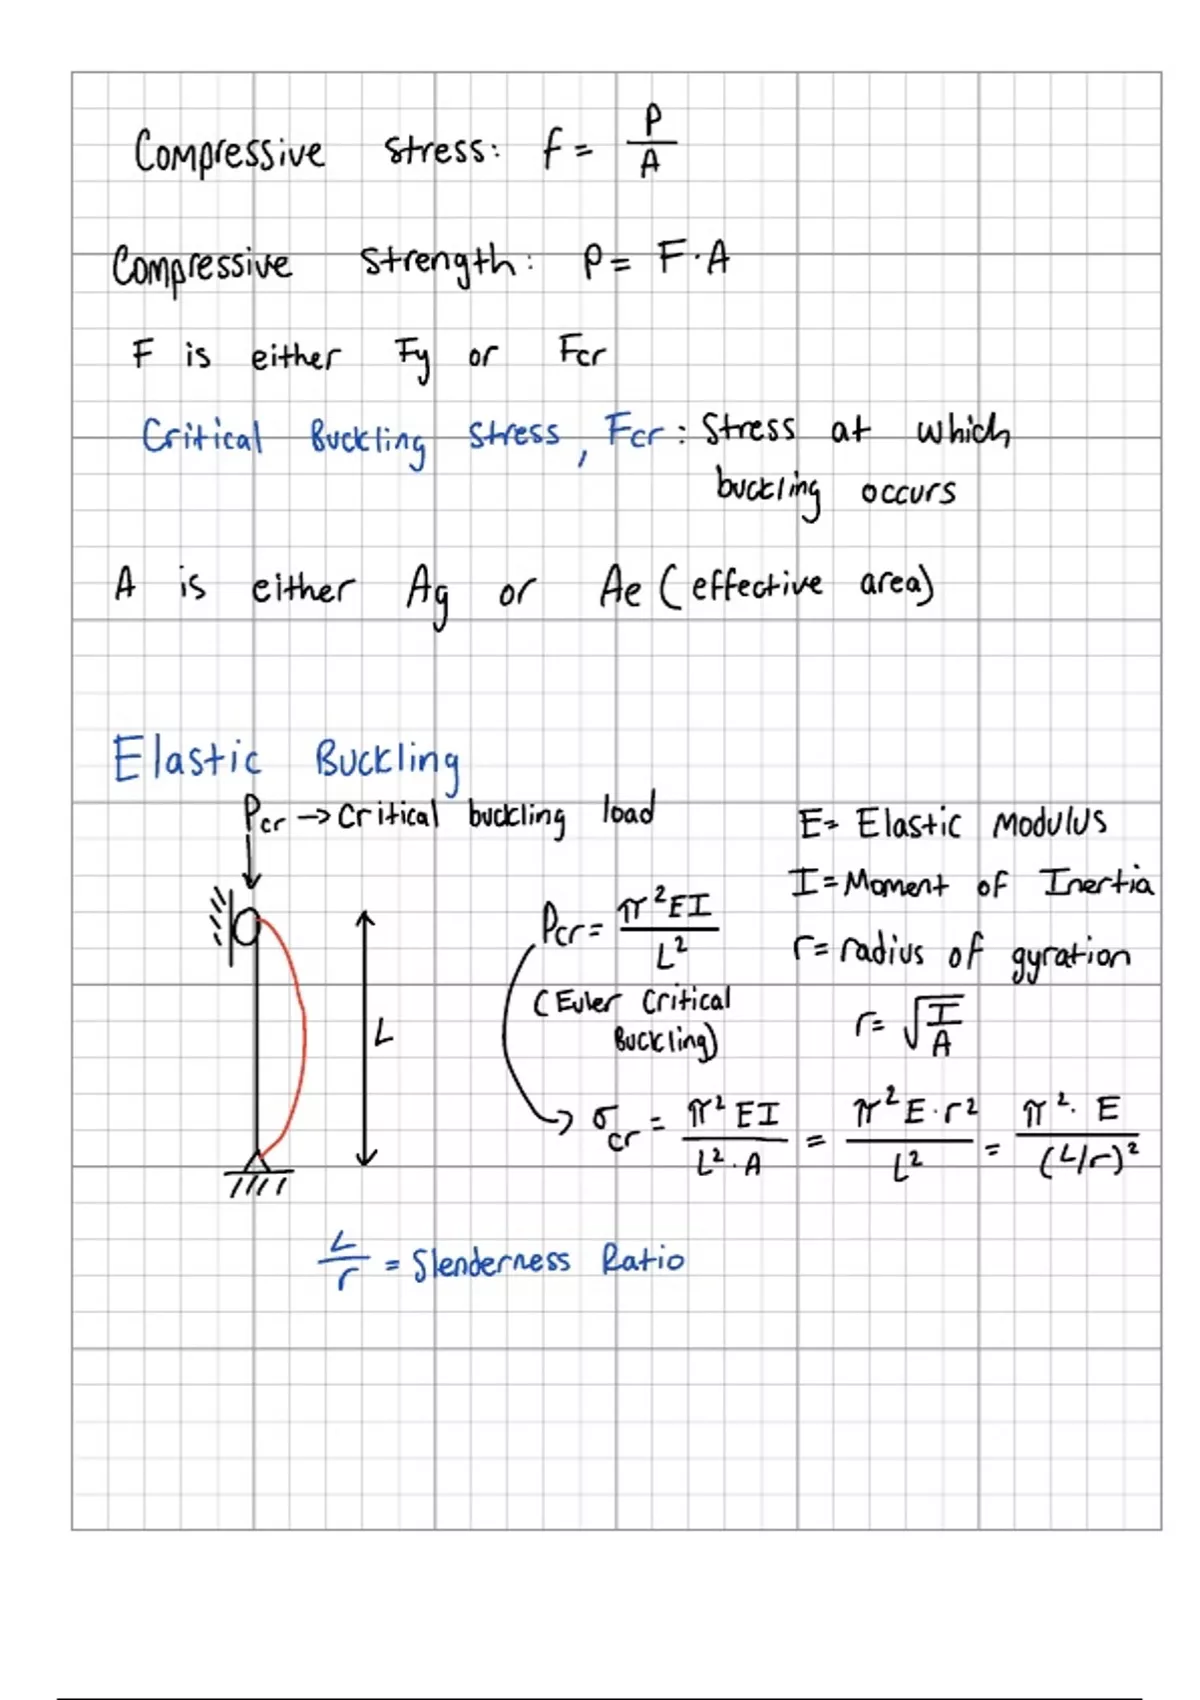 Compressive stress: f = P/A
Compressive strength: P = F·A
F is either Fy or Fcr
Critical Buckling Stress, Fcr: Stress at which
buckling occurs
A is either Ag or Ae (effective area)
Elastic Buckling
Pcr → Critical buckling load
E= Elastic Modulus
I = Moment of Inertia
Pcr = π²EI/L²
r = radius of gyration
(Euler Critical
Buckling)
r = √(I/A)
L
σcr = π²EI/L²·A = π²E·r²/L² = π²·E/(L/r)²
L/r = Slenderness Ratio